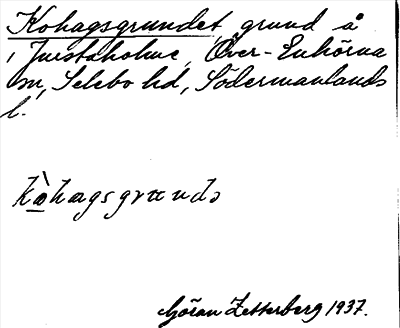 Kohagsgrundet, grund å
i Juestaholme, Över-Enhörna
sn, Selebo hd, Södermanlands
l.
kòhagsgrundə
Göran Zetterberg 1937.